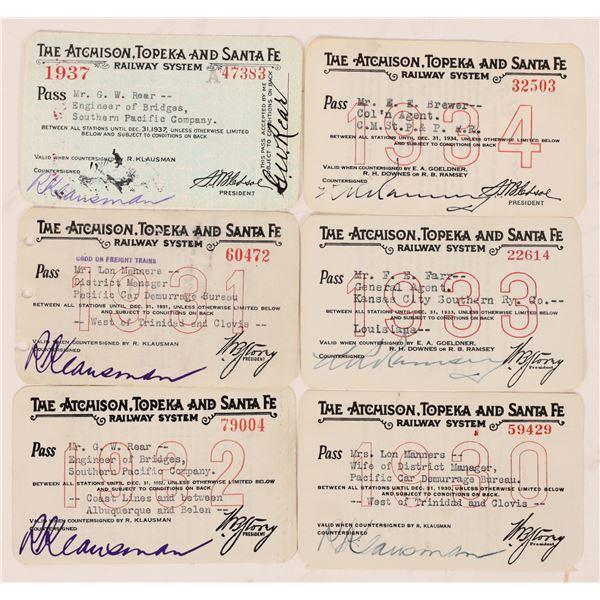 THE ATCHISON, TOPEKA AND SANTA FE
RAILWAY SYSTEM
1937
A 47383
Pass Mr. G. W. Rear--
Engineer of Bridges,
Southern Pacific Company.
BETWEEN ALL STATIONS UNTIL DEC. 31, 1937, UNLESS OTHERWISE LIMITED BELOW
AND SUBJECT TO CONDITIONS ON BACK
VALID WHEN COUNTERSIGNED BY R. KLAUSMAN
COUNTERSIGNED
RKlausman
PRESIDENT
THIS PASS ACCEPTED BY ME
SUBJECT TO CONDITIONS ON BACK
G.W. Rear
THE ATCHISON, TOPEKA AND SANTA FE
RAILWAY SYSTEM
32503
1934
Pass Mr. E. E. Brewer--
Col'n Agent.
C.M.St.P.& P. R.R.
BETWEEN ALL STATIONS UNTIL DEC. 31, 1934, UNLESS OTHERWISE LIMITED BELOW
AND SUBJECT TO CONDITIONS ON BACK
VALID WHEN COUNTERSIGNED BY E. A. GOELDNER,
R. H. DOWNES OR R. B. RAMSEY
COUNTERSIGNED
PRESIDENT
THE ATCHISON, TOPEKA AND SANTA FE
RAILWAY SYSTEM
60472
GOOD ON FREIGHT TRAINS
1931
Pass Mr. Lon Manners --
District Manager
Pacific Car Demurrage Bureau
BETWEEN ALL STATIONS UNTIL DEC. 31, 1931, UNLESS OTHERWISE LIMITED BELOW
AND SUBJECT TO CONDITIONS ON BACK.
-- West of Trinidad and Clovis --
VALID WHEN COUNTERSIGNED BY R. KLAUSMAN
COUNTERSIGNED
RKlausman
WBStory
PRESIDENT
THE ATCHISON, TOPEKA AND SANTA FE
RAILWAY SYSTEM
22614
1933
Pass Mr. F. E. Farr--
General Agent.
Kansas City Southern Ry. Co.--
BETWEEN ALL STATIONS UNTIL DEC. 31, 1933, UNLESS OTHERWISE LIMITED BELOW
AND SUBJECT TO CONDITIONS ON BACK
Louisiana--
VALID WHEN COUNTERSIGNED BY E. A. GOELDNER,
R. H. DOWNES OR R. B. RAMSEY
COUNTERSIGNED
WBStory
President.
THE ATCHISON, TOPEKA AND SANTA FE
RAILWAY SYSTEM
79004
1932
Pass Mr. G. W. Rear --
Engineer of Bridges,
Southern Pacific Company.
BETWEEN ALL STATIONS UNTIL DEC. 31, 1932, UNLESS OTHERWISE LIMITED BELOW
AND SUBJECT TO CONDITIONS ON BACK.
-- Coast Lines and between
Albuquerque and Belen --
VALID WHEN COUNTERSIGNED BY R. KLAUSMAN
COUNTERSIGNED
RKlausman
WBStory
President.
THE ATCHISON, TOPEKA AND SANTA FE
RAILWAY SYSTEM
59429
1930
Pass Mrs. Lon Manners --
Wife of District Manager,
Pacific Car Demurrage Bureau.
BETWEEN ALL STATIONS UNTIL DEC. 31, 1930, UNLESS OTHERWISE LIMITED BELOW
AND SUBJECT TO CONDITIONS ON BACK.
-- West of Trinidad and Clovis --
VALID WHEN COUNTERSIGNED BY R. KLAUSMAN
COUNTERSIGNED
RKlausman
WBStory
PRESIDENT